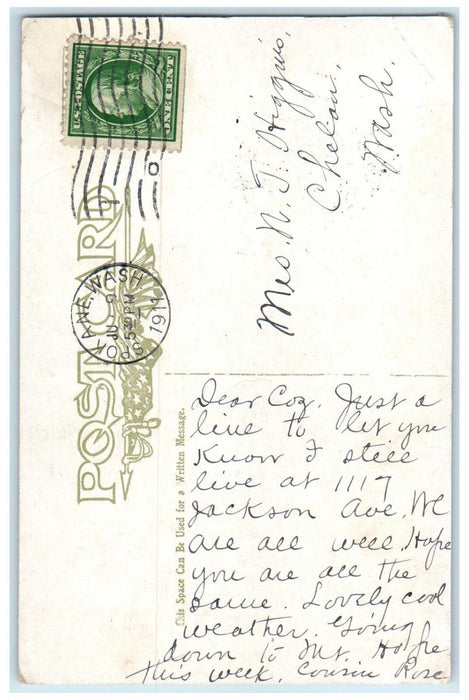 U.S. POSTAGE
POST CARD
SPOKANE, WASH
JUL
530PM
1911
Mrs. N. J. Higgins,
Chelan,
Wash.
This Space Can Be Used for a Written Message.
Dear Coz. Just a
line to let you
know I still
live at 1117
Jackson Ave. We
are all well. Hope
you are all the
same. Lovely cool
weather. Going
down to Mt. Hope
this week. Cousin Rose